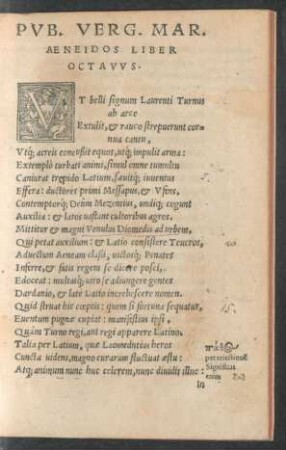 PVB. VERG. MAR.
AENEIDOS LIBER
OCTAVVS.
VT belli signum Laurenti Turnus
ab arce
Extulit, & rauco strepuerunt cor-
nua cantu,
Vtq; acreis concussit equos, utq; impulit arma:
Extemplo turbati animi, simul omne tumultu
Coniurat trepido Latium, sæuitq; iuuentus
Effera: ductores primi Messapus, & Vfens,
Contemptorq; Deûm Mezentius, undiq; cogunt
Auxilia: & latos uastant cultoribus agros.
Mittitur & magni Venulus Diomedis ad urbem,
Qui petat auxilium: & Latio consistere Teucros,
Aduectum Aeneam classi, uictosq; Penates
Inferre, & fatis regem se dicere posci,
Edoceat: multasq; uiro se adiungere gentes
Dardanio, & late Latio increbescere nomen.
Quid struat his cœptis: quem si fortuna sequatur,
Euentum pugnæ cupiat: manifestius ipsi,
Quàm Turno regi, aut regi apparere Latino.
Talia per Latium, quæ Laomedontius heros
Cuncta uidens, magno curarum fluctuat æstu:
Atq; animum nunc huc celerem, nunc diuidit illuc:
In
5.
15.
Significat
enim